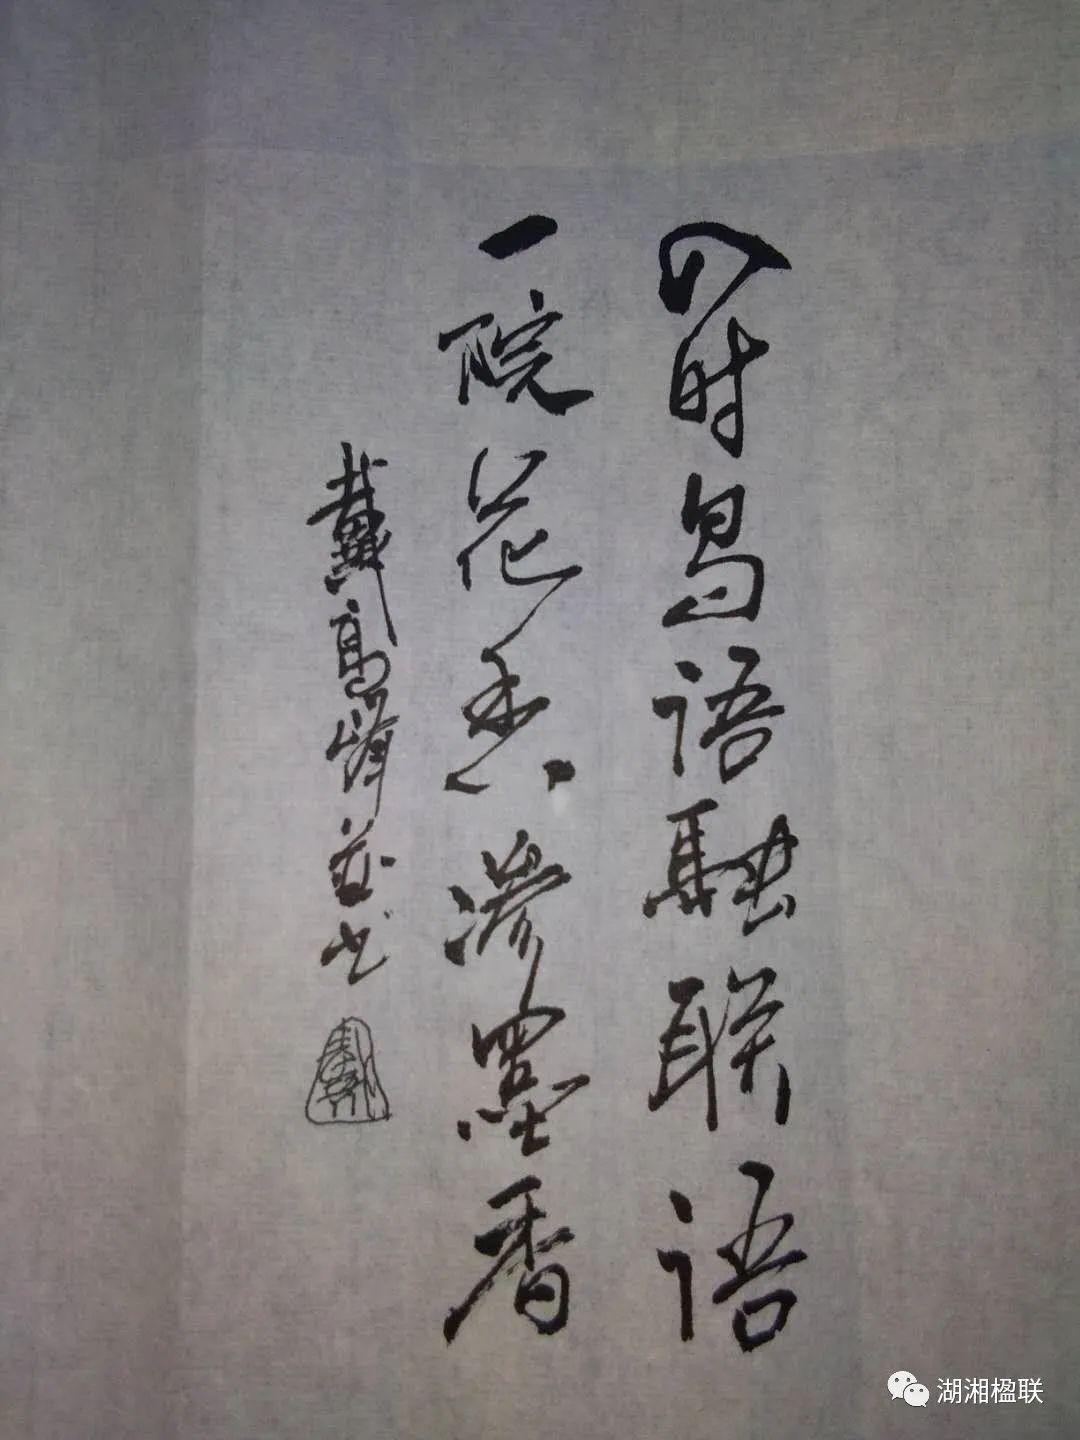 四时鸟语融联语
一院花香渗墨香
戴高峰并书
湖湘楹联